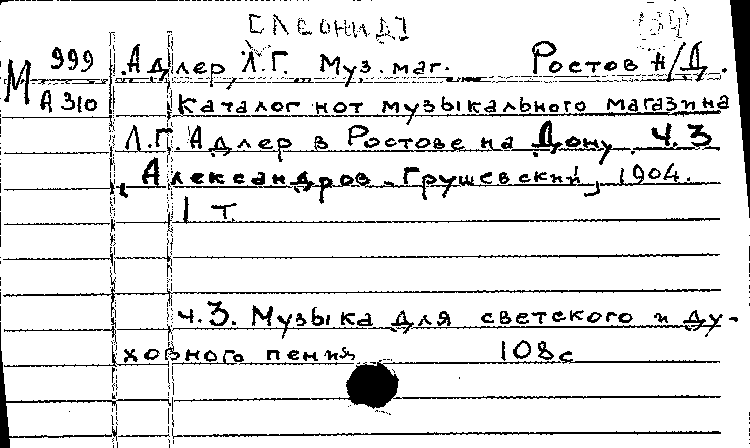 [Леонид] (34)
М 999 Адлер, Л.Г. Муз. маг. Ростов н/Д.
А 310 Каталог нот музыкального магазина
Л.Г. Адлер в Ростове на Дону. Ч.3
[Александров-Грушевский], 1904.
1 т
ч.3. Музыка для светского и ду-
ховного пения 108с